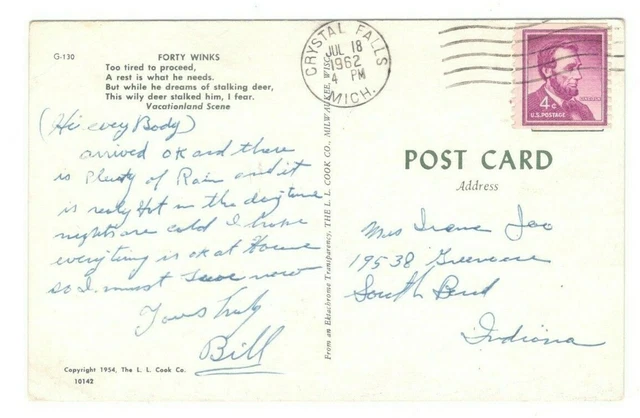 G-130
FORTY WINKS
Too tired to proceed,
A rest is what he needs.
But while he dreams of stalking deer,
This wily deer stalked him, I fear.
Vacationland Scene
(Hi every Body)
arrived ok and there
is Plenty of Rain and it
is really Hot in the daytime
nights are cold I hope
everything is ok at Home
so I must now
Yours truly
Bill
Copyright 1954, The L. L. Cook Co.
10142
From an Ektachrome Transparency, THE L. L. COOK CO., MILWAUKEE, WISC.
CRYSTAL FALLS
JUL 18
1962
4 PM
MICH.
4¢
U.S. POSTAGE
POST CARD
Address
Mrs Irene
19538
South Bend
Indiana